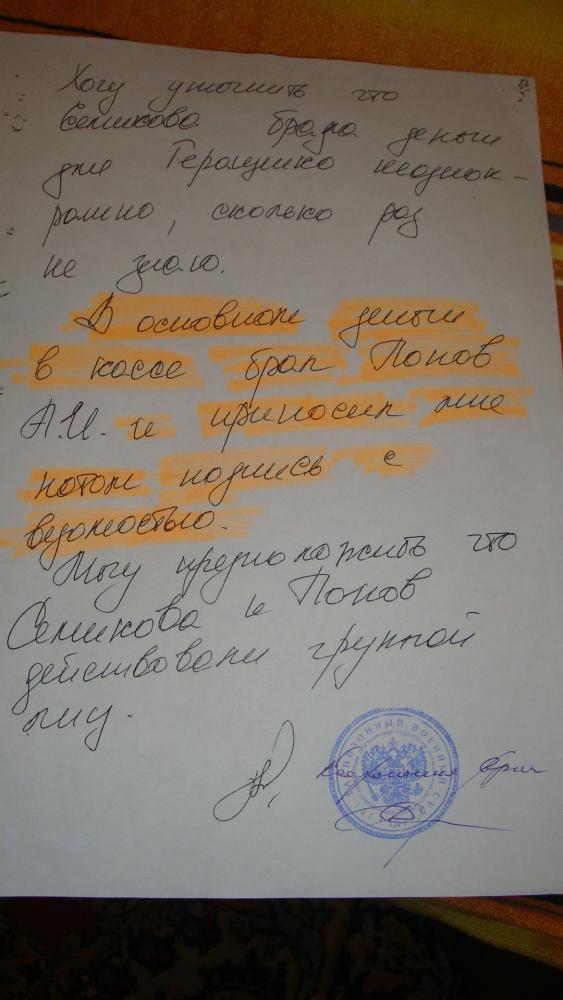 Хочу уточнить что
Семикова брала деньги
для Геращенко неоднок-
ратно, сколько раз
не знаю.
В основном деньги
в кассе брал Попов
А.И. и приносил мне
потом подпись с
ведомостью.
Могу предположить что
Семикова и Попов
действовали группой
лиц.
ГАРНИЗОННЫЙ ВОЕННЫЙ СУД